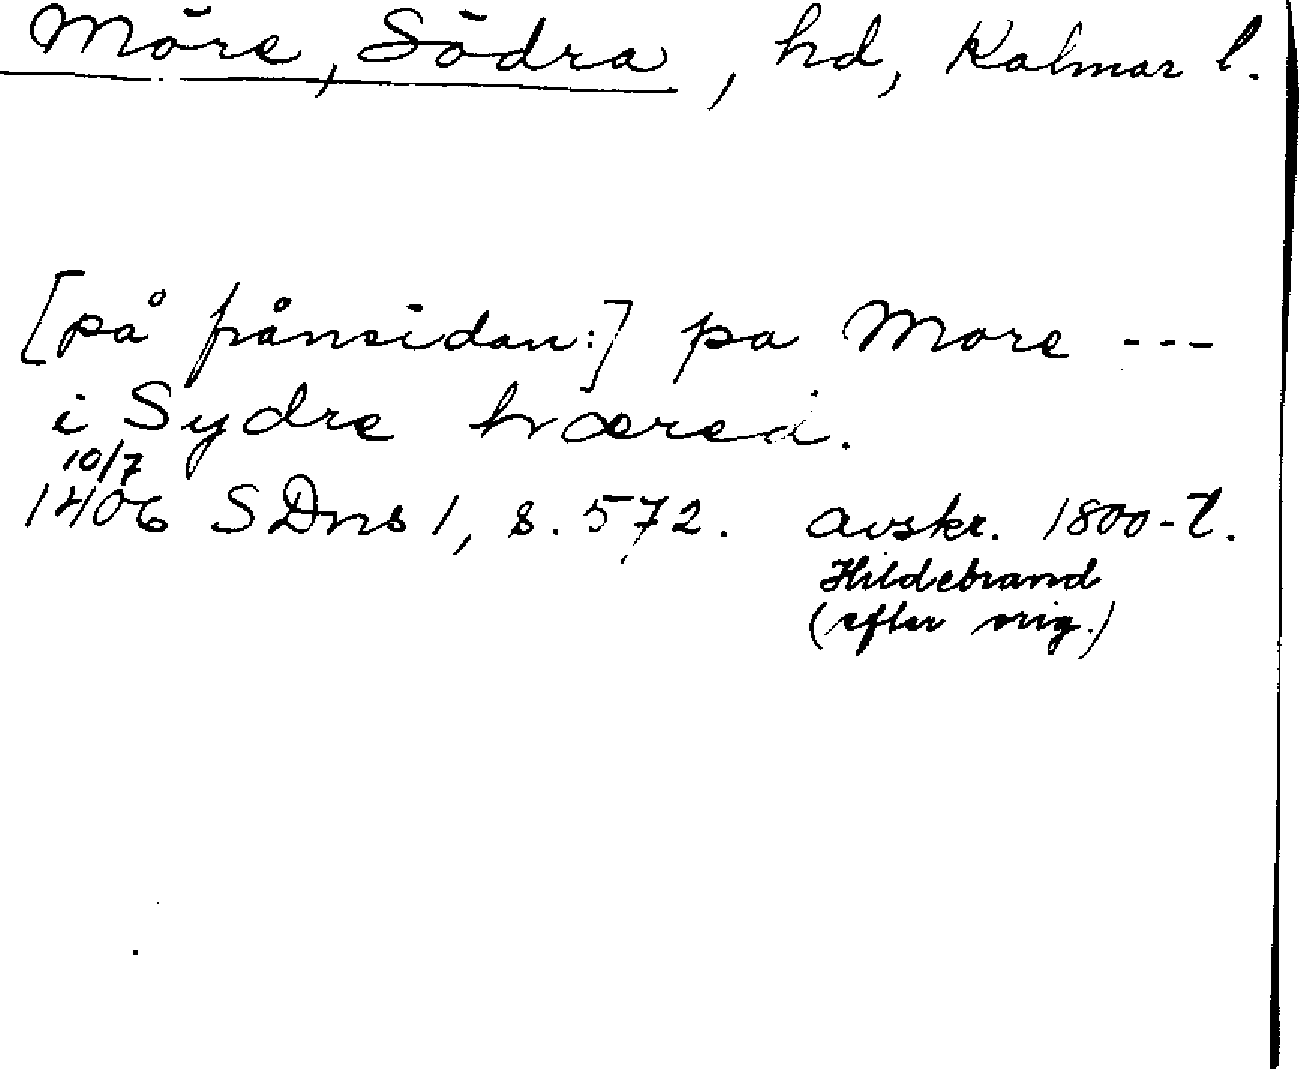 Möre, Södra, hd, Kalmar l.
[på frånsidan:] pa More ---
i Sydre hæred.
10/7
1406 SDns 1, s. 572. avskr. 1800-t.
Hildebrand
(efter orig.)